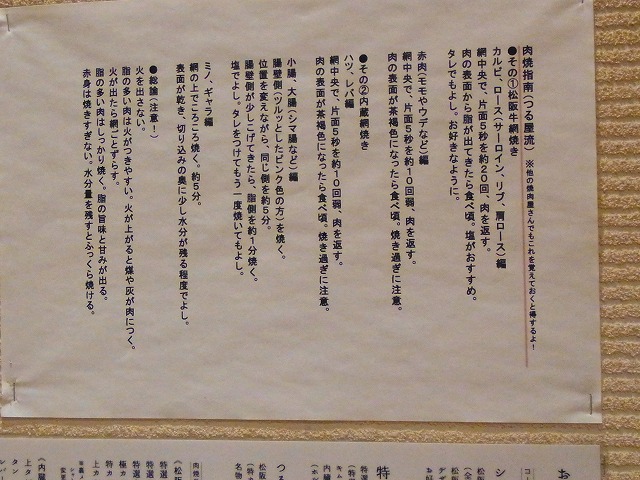 肉焼指南(つる屋流) ※他の焼肉屋さんでもこれを覚えておくと得するよ!
●その①松阪牛網焼き
カルビ、ロース(サーロイン、リブ、肩ロース)編
網中央で、片面5秒を約20回、肉を返す。
肉の表面から脂が出てきたら食べ頃。塩がおすすめ。
タレでもよし。お好きなように。
赤肉(モモやウデなど)編
網中央で、片面5秒を約10回弱、肉を返す。
肉の表面が茶褐色になったら食べ頃。焼き過ぎに注意。
●その②内蔵網焼き
ハツ、レバ編
網中央で、片面5秒を約10回弱、肉を返す。
肉の表面が茶褐色になったら食べ頃。焼き過ぎに注意。
小腸、大腸(シマ腸など)編
腸壁側(ツルッとしたピンク色の方)を焼く。
位置を変えながら、同じ側を約5分。
腸壁側が少しこげてきたら、脂側を約1分焼く。
塩でよし。タレをつけてもう一度焼いてもよし。
ミノ、ギャラ編
網の上でころころ焼く。約5分。
表面が乾き、切り込みの奥に少し水分が残る程度でよし。
●総論(注意!)
火を出さない。
脂の多い肉は火がつきやすい。火が上がると煤や灰が肉につく。
火が出たら網ごとずらす。
脂の多い肉はしっかり焼く。脂の旨味と甘みが出る。
赤身は焼きすぎない。水分量を残すとふっくら焼ける。
お
コー
シ
松阪
(全
松阪
デザ
お好
特
特選
(特
キム
内臓
(ホル
つる
松阪
(特
名物
肉焼
《松阪
特選
特選
極カ
特カ
上カ
《内臓
上タ
タン